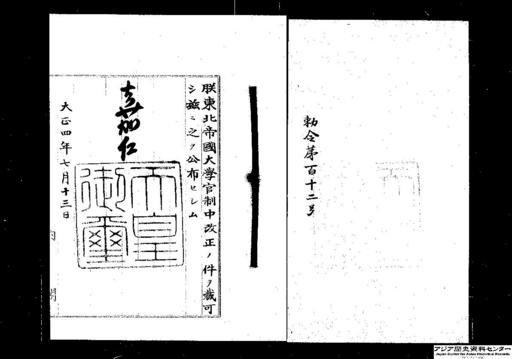 勅令第百十二号
朕東北帝國大学官制中改正ノ件ヲ裁可
シ茲ニ之ヲ公布セシム
嘉仁
天皇御璽
大正四年七月十三日
内閣
アジア歴史資料センター
Japan Center for Asian Historical Records